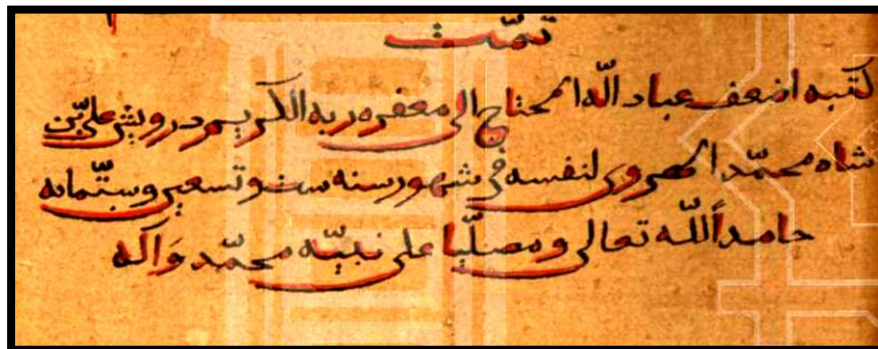 تمّت
كتبه اضعف عباد الله المحتاج الى مغفره ربه الكريم درويش على بن
شاه محمّد الهروى لنفسه فى شهور سنه ست و تسعين و ستّمائه
حامداً لله تعالى و مصلّيا على نبيّه محمّد وَآله